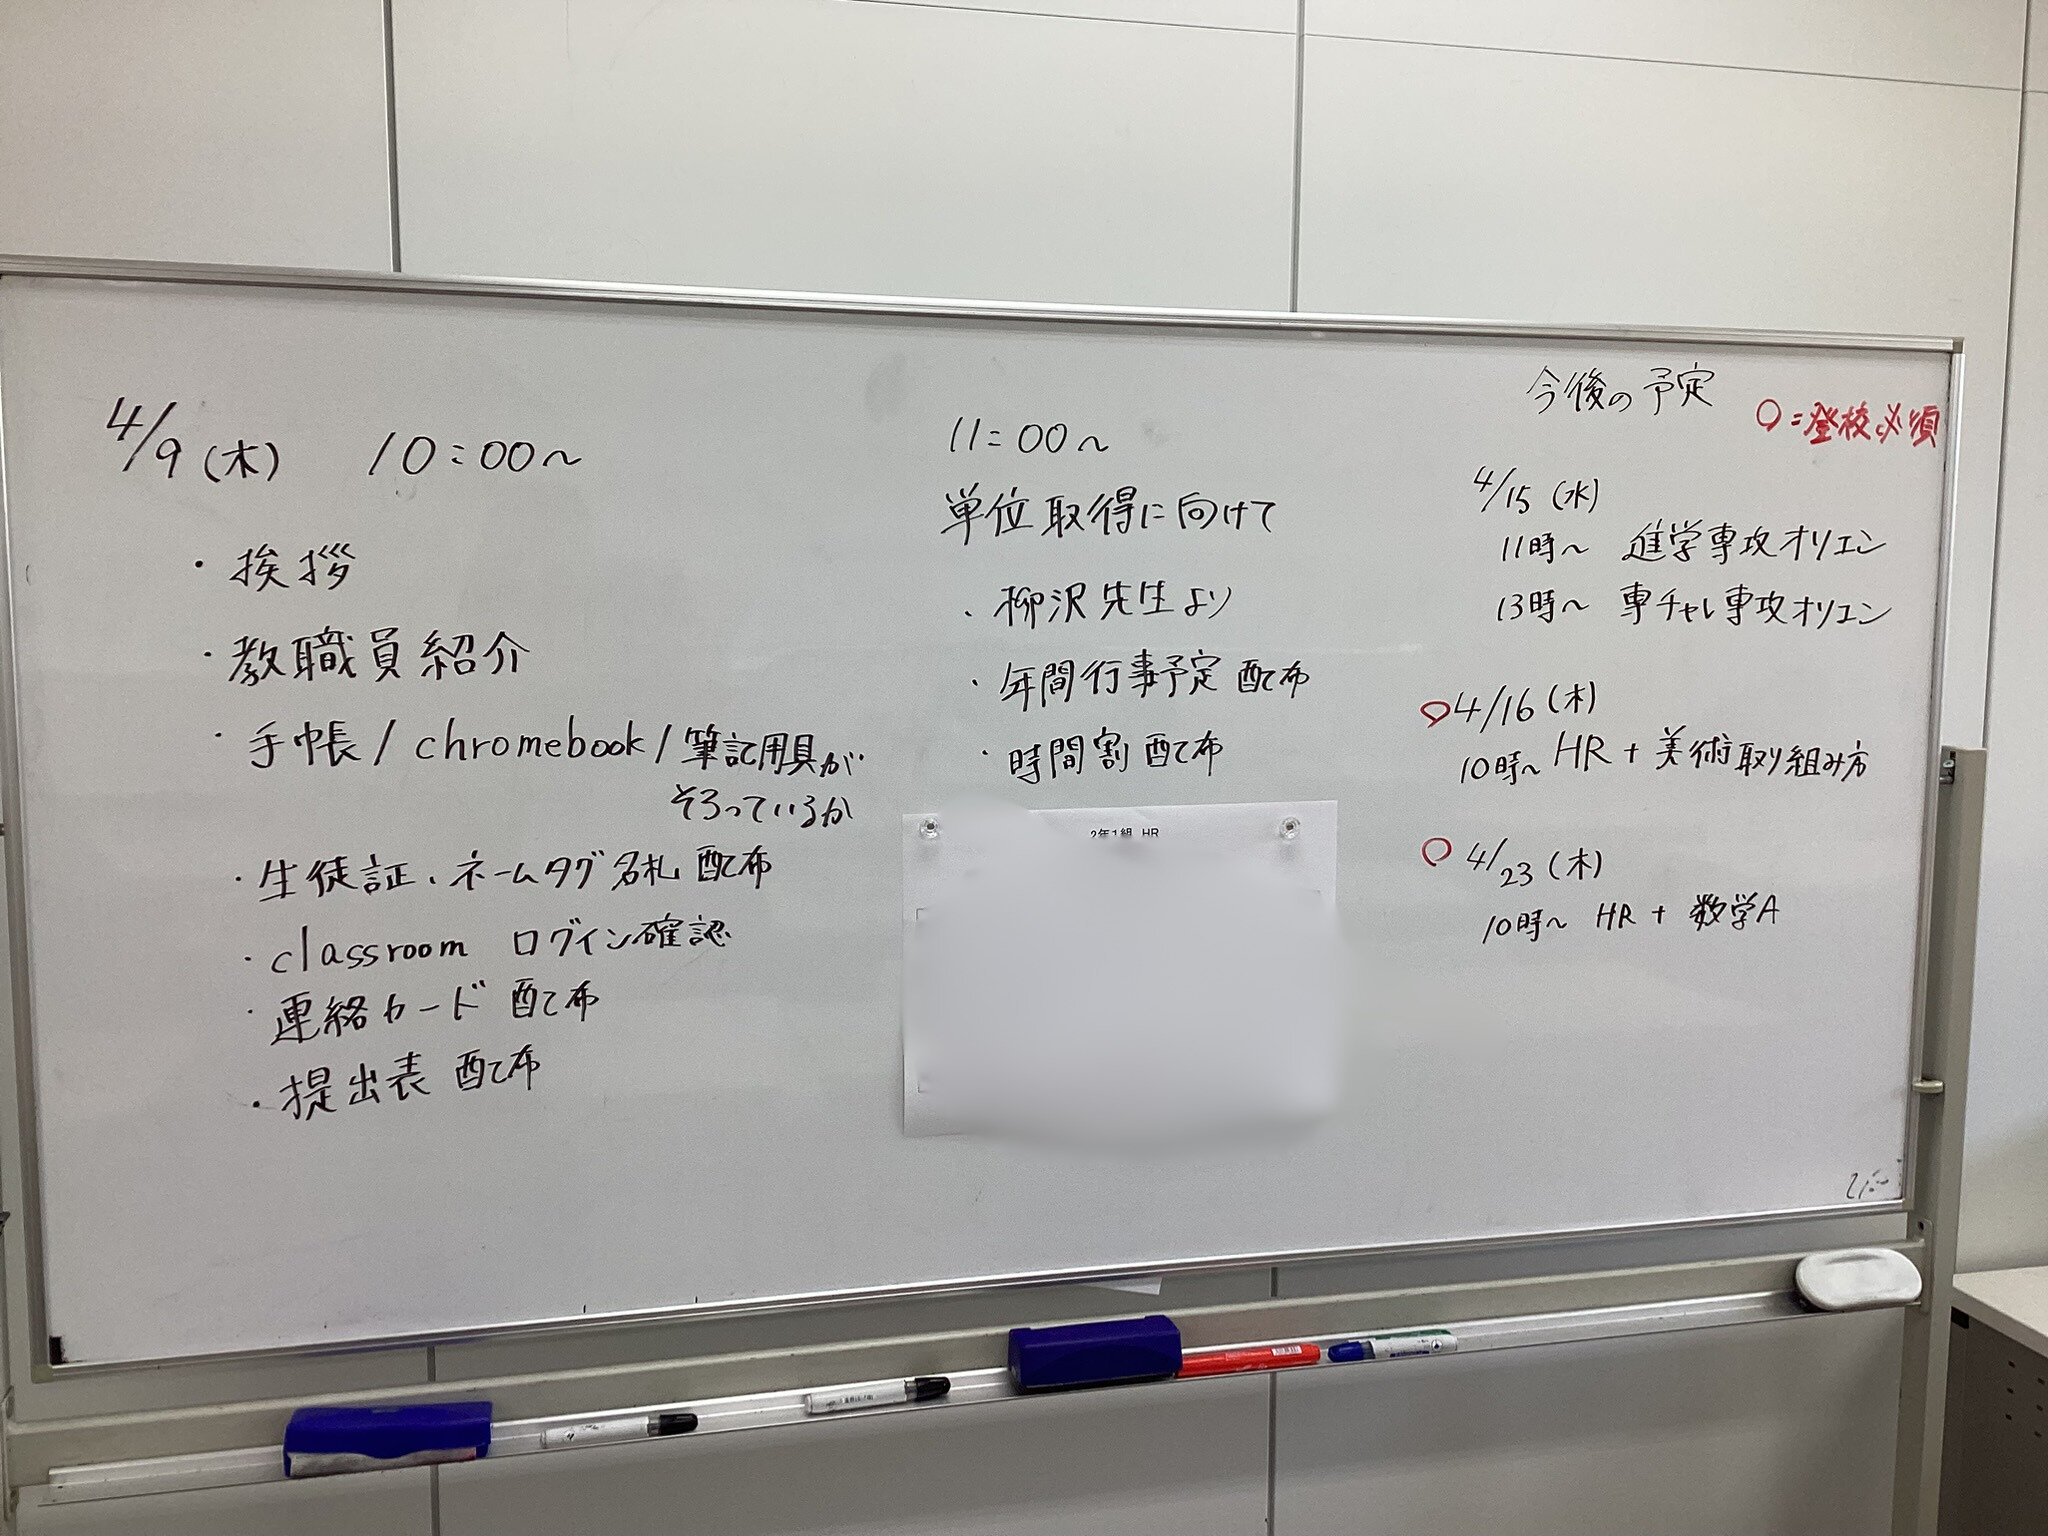 4/9(木) 10:00〜
・挨拶
・教職員紹介
・手帳/chromebook/筆記用具が
そろっているか
・生徒証、ネームタグ名札配布
・classroom ログイン確認
・連絡カード配布
・提出表配布
11:00〜
単位取得に向けて
・柳沢先生より
・年間行事予定配布
・時間割配布
2年1組 HR
今後の予定
○=登校必須
4/15(水)
11時〜 進学専攻オリエン
13時〜 専チャレ専攻オリエン
○4/16(木)
10時〜 HR+美術取り組み方
○4/23(木)
10時〜 HR+数学A